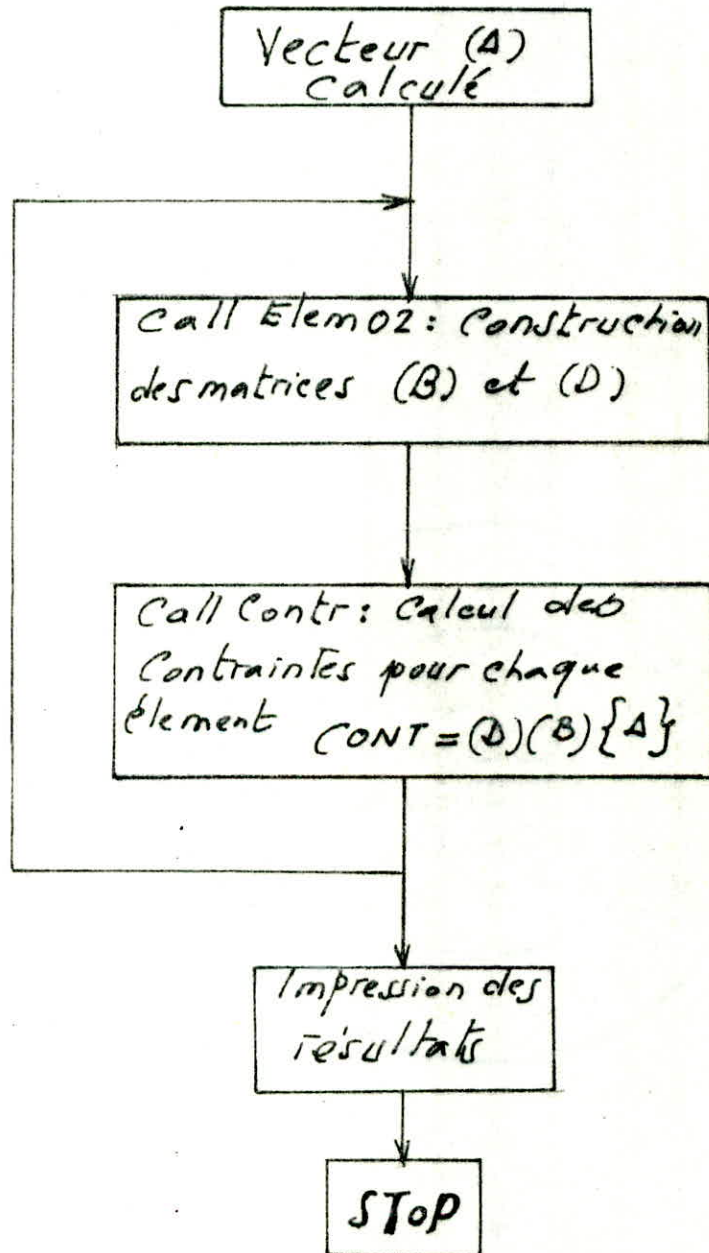 Vecteur (Δ)
Calculé
Call Elem02: Construction
des matrices (B) et (D)
Call Contr: Calcul des
Contraintes pour chaque
élement CONT = (D)(B){Δ}
Impression des
résultats
STOP